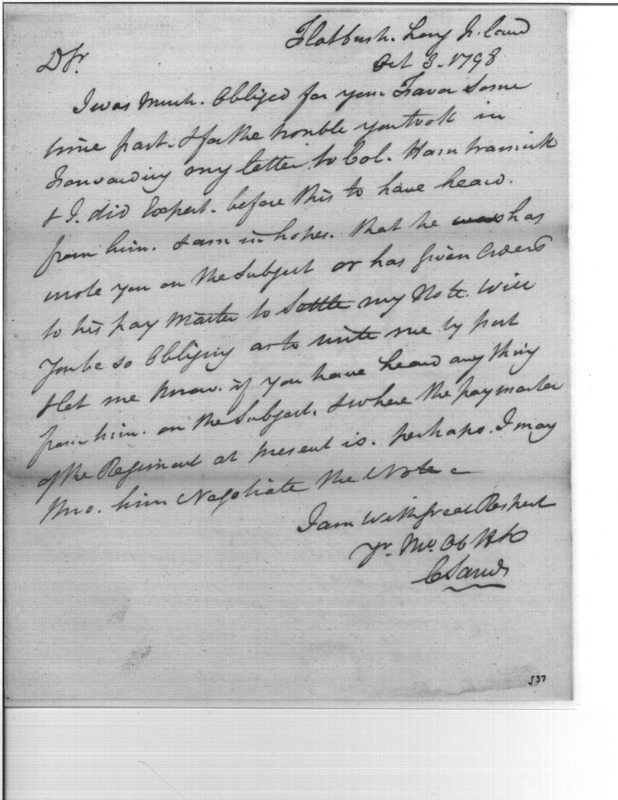 Flatbush. Long Island
Oct 3. 1798
D Sr.
I was Much. Obliged for your Favor Some
time past. & for the trouble you took in
Forwarding my letter to Col. Hamtramick
& I. did Expect. before this to have heard.
from him. I am in hopes. that he was has
wrote you on the Subject or has Given Orders
to his pay Master to Settle my Note. Will
You be so Obliging as to write me by post
& let me know. if you have heard any thing
from him. on the Subject. & where the paymaster
of the Regiment at present is. perhaps. I may
thro. him Negotiate the Note -
I am With Great Respect
Yr. Mo. Ob. H
C Sands
537